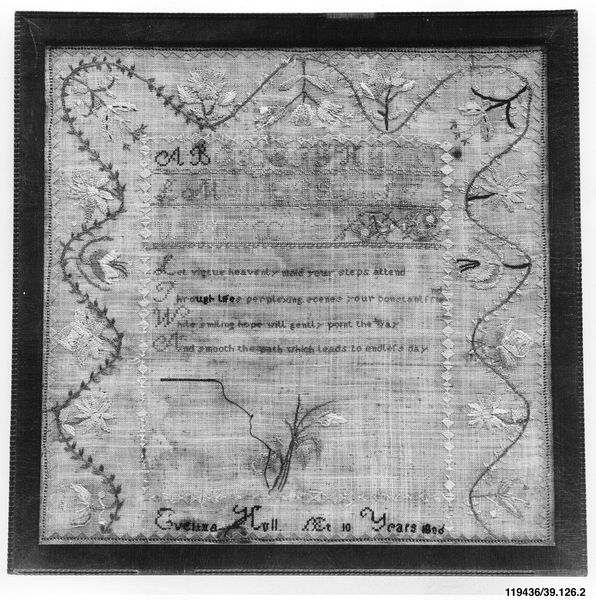 A B
Let virtue heavenly maid your steps attend
Through lifes perplexing scenes your constant friend
While smiling hope will gently point the way
And smooth the path which leads to endlefs day
Evelina Hull. Æt 10 Years
119436/39.126.2